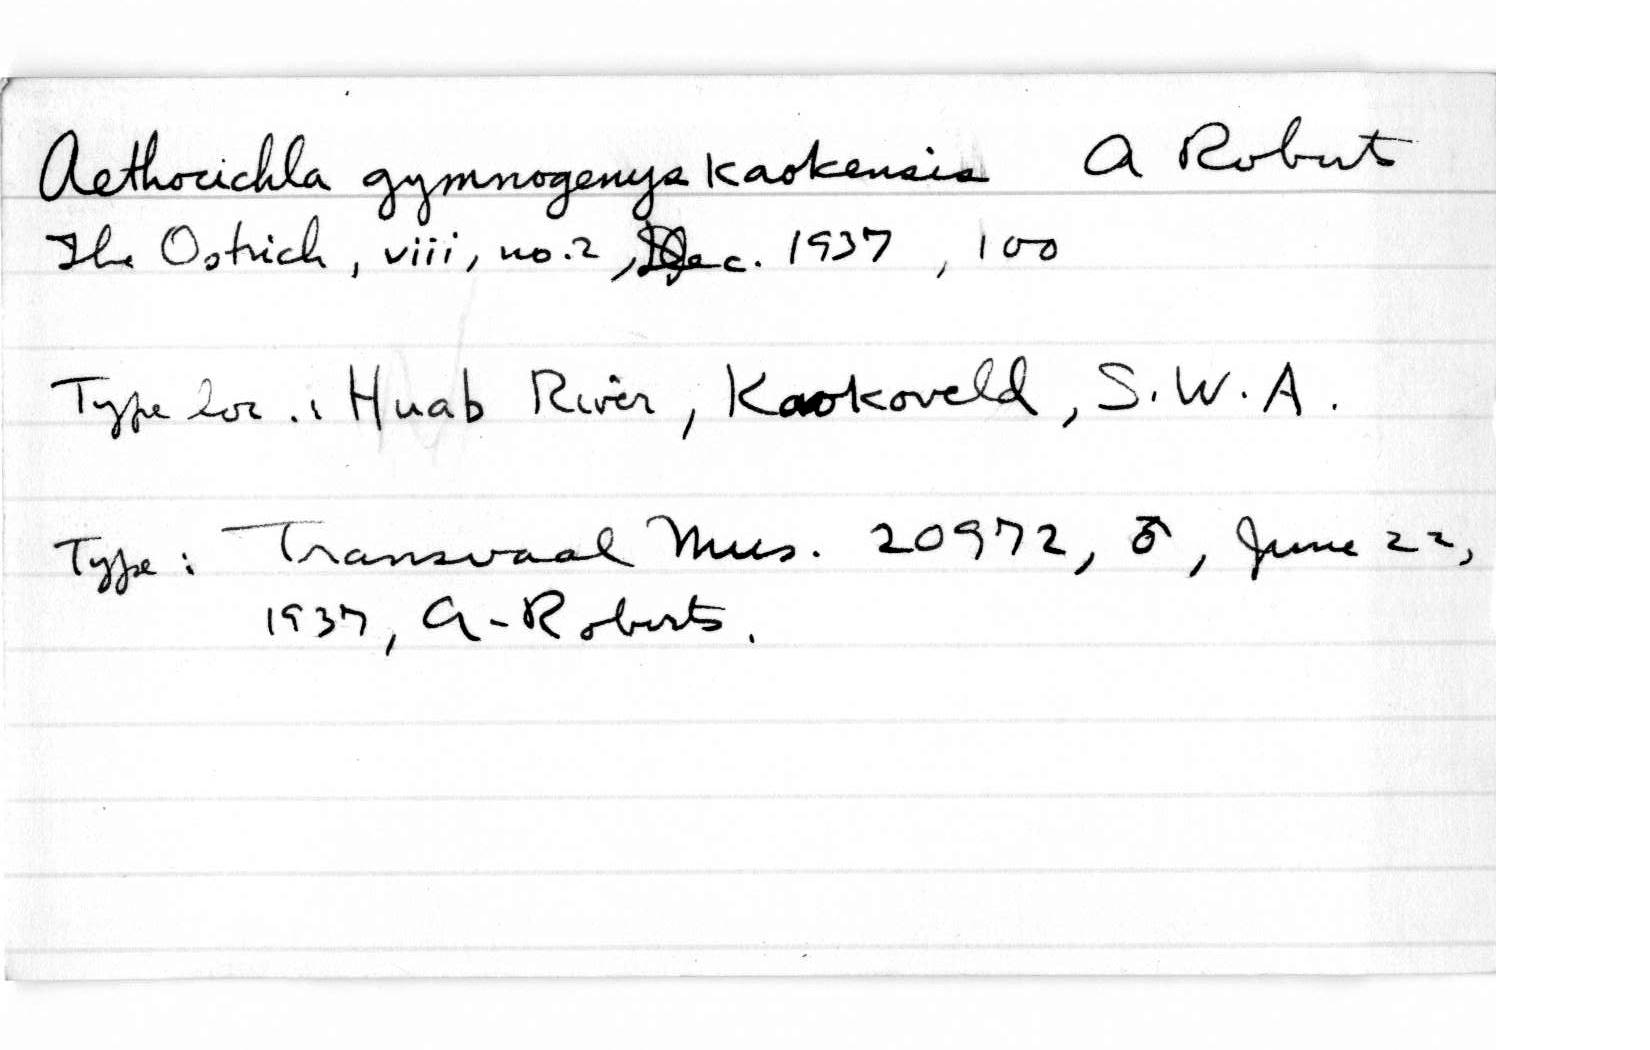 Aethocichla gymnogenys kaokensis A Roberts
The Ostrich, viii, no. 2, Dec. 1937, 100
Type loc.: Huab River, Kaokoveld, S.W.A.
Type: Transvaal Mus. 20972, ♂, June 22,
1937, A. Roberts.